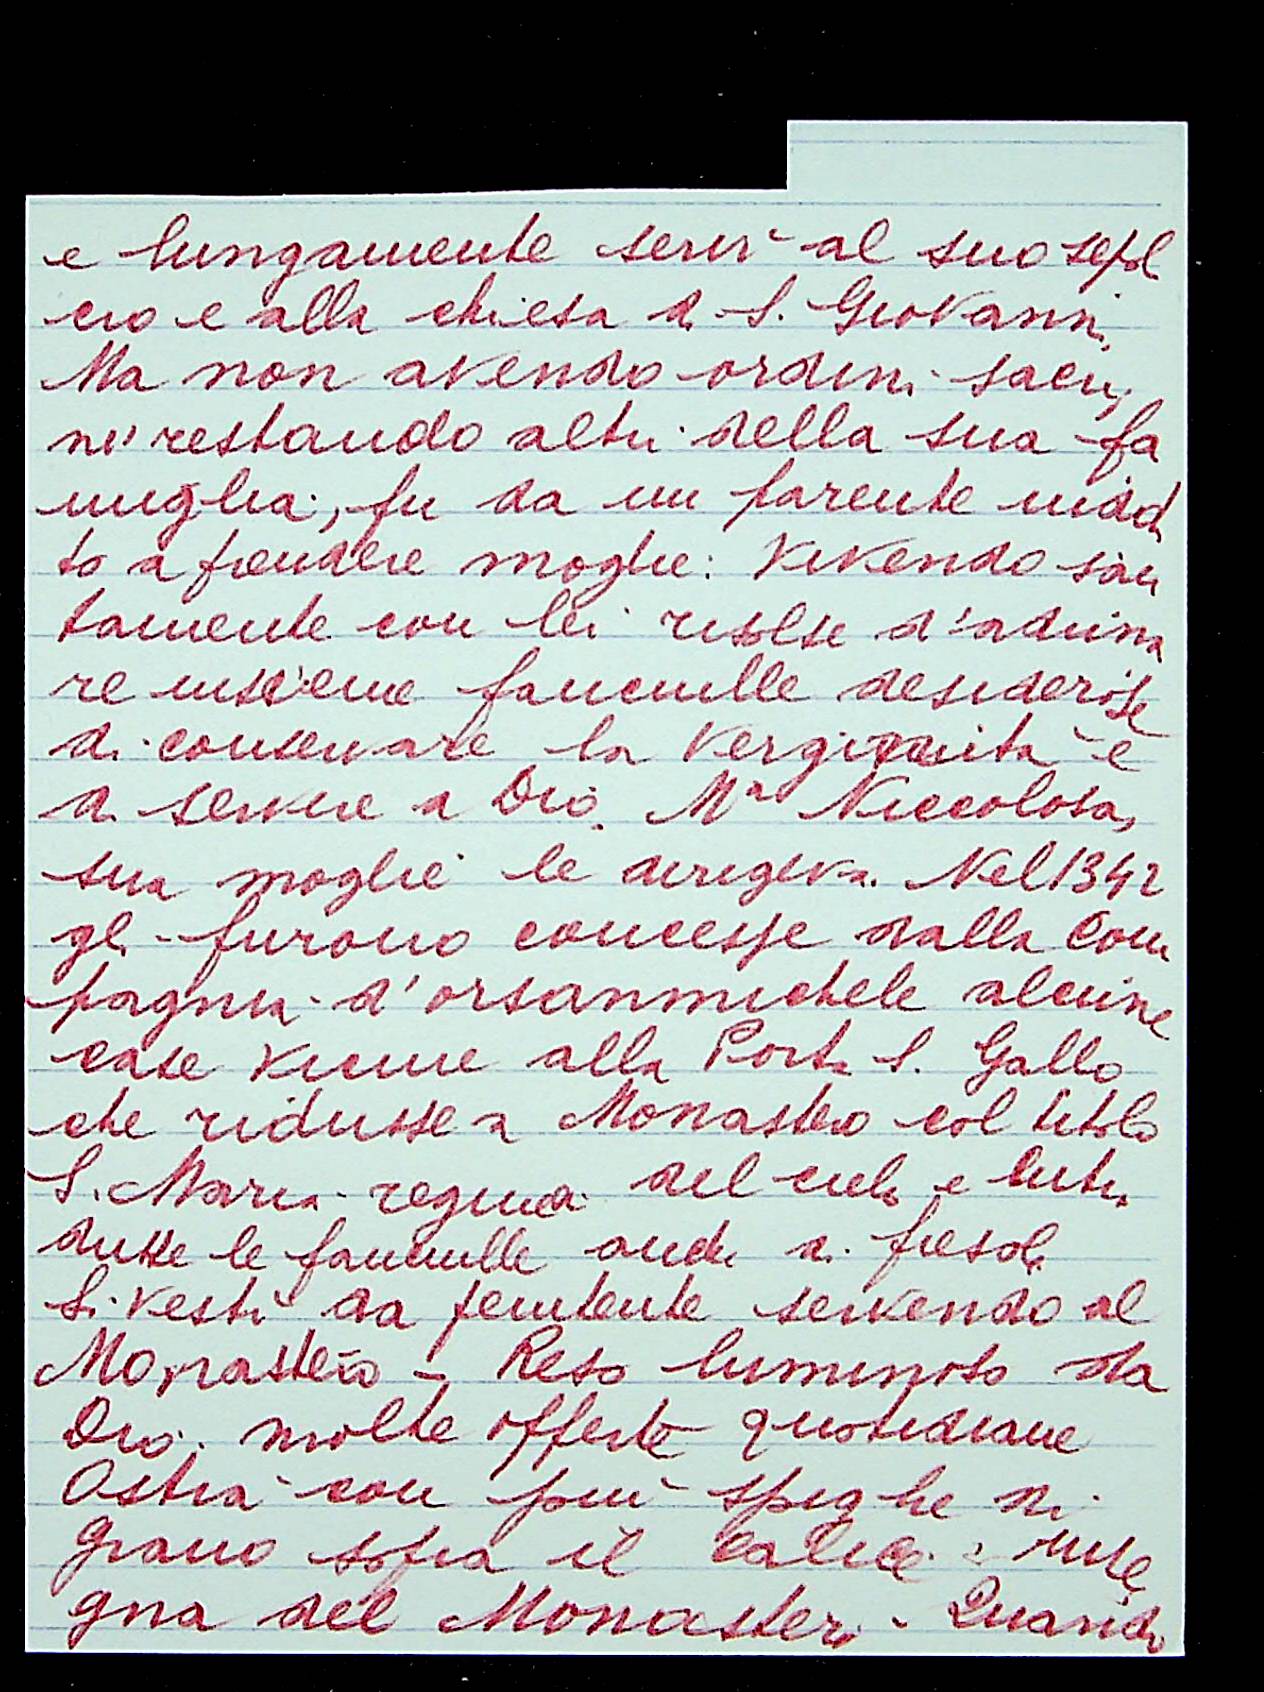 e lungamente servì al suo sepol
cro e alla chiesa di S. Giovanni
Ma non avendo ordini sacri,
nè restando altri della sua fa
miglia, fu da un parente
to a prendere moglie: Vivendo san
tamente con lei risolse d'aduna
re insieme fanciulle desiderose
di conservare la verginità e
di servire a Dio. Mª Niccolosa,
sua moglie le dirigeva. Nel 1342
gli furono concesse dalla Com
pagnia d'orsanmichele alcune
case vicine alla Porta S. Gallo
che ridusse a Monastero col titolo
S. Maria regina del cielo e
dusse le fanciulle anche di fiesole
Si vestì da penitente servendo al
Monastero - Reso luminoso da
Dio. molte offerte quotidiane
Ostia con più spighe di
grano sopra il calice: inse
gna del Monastero - Quando